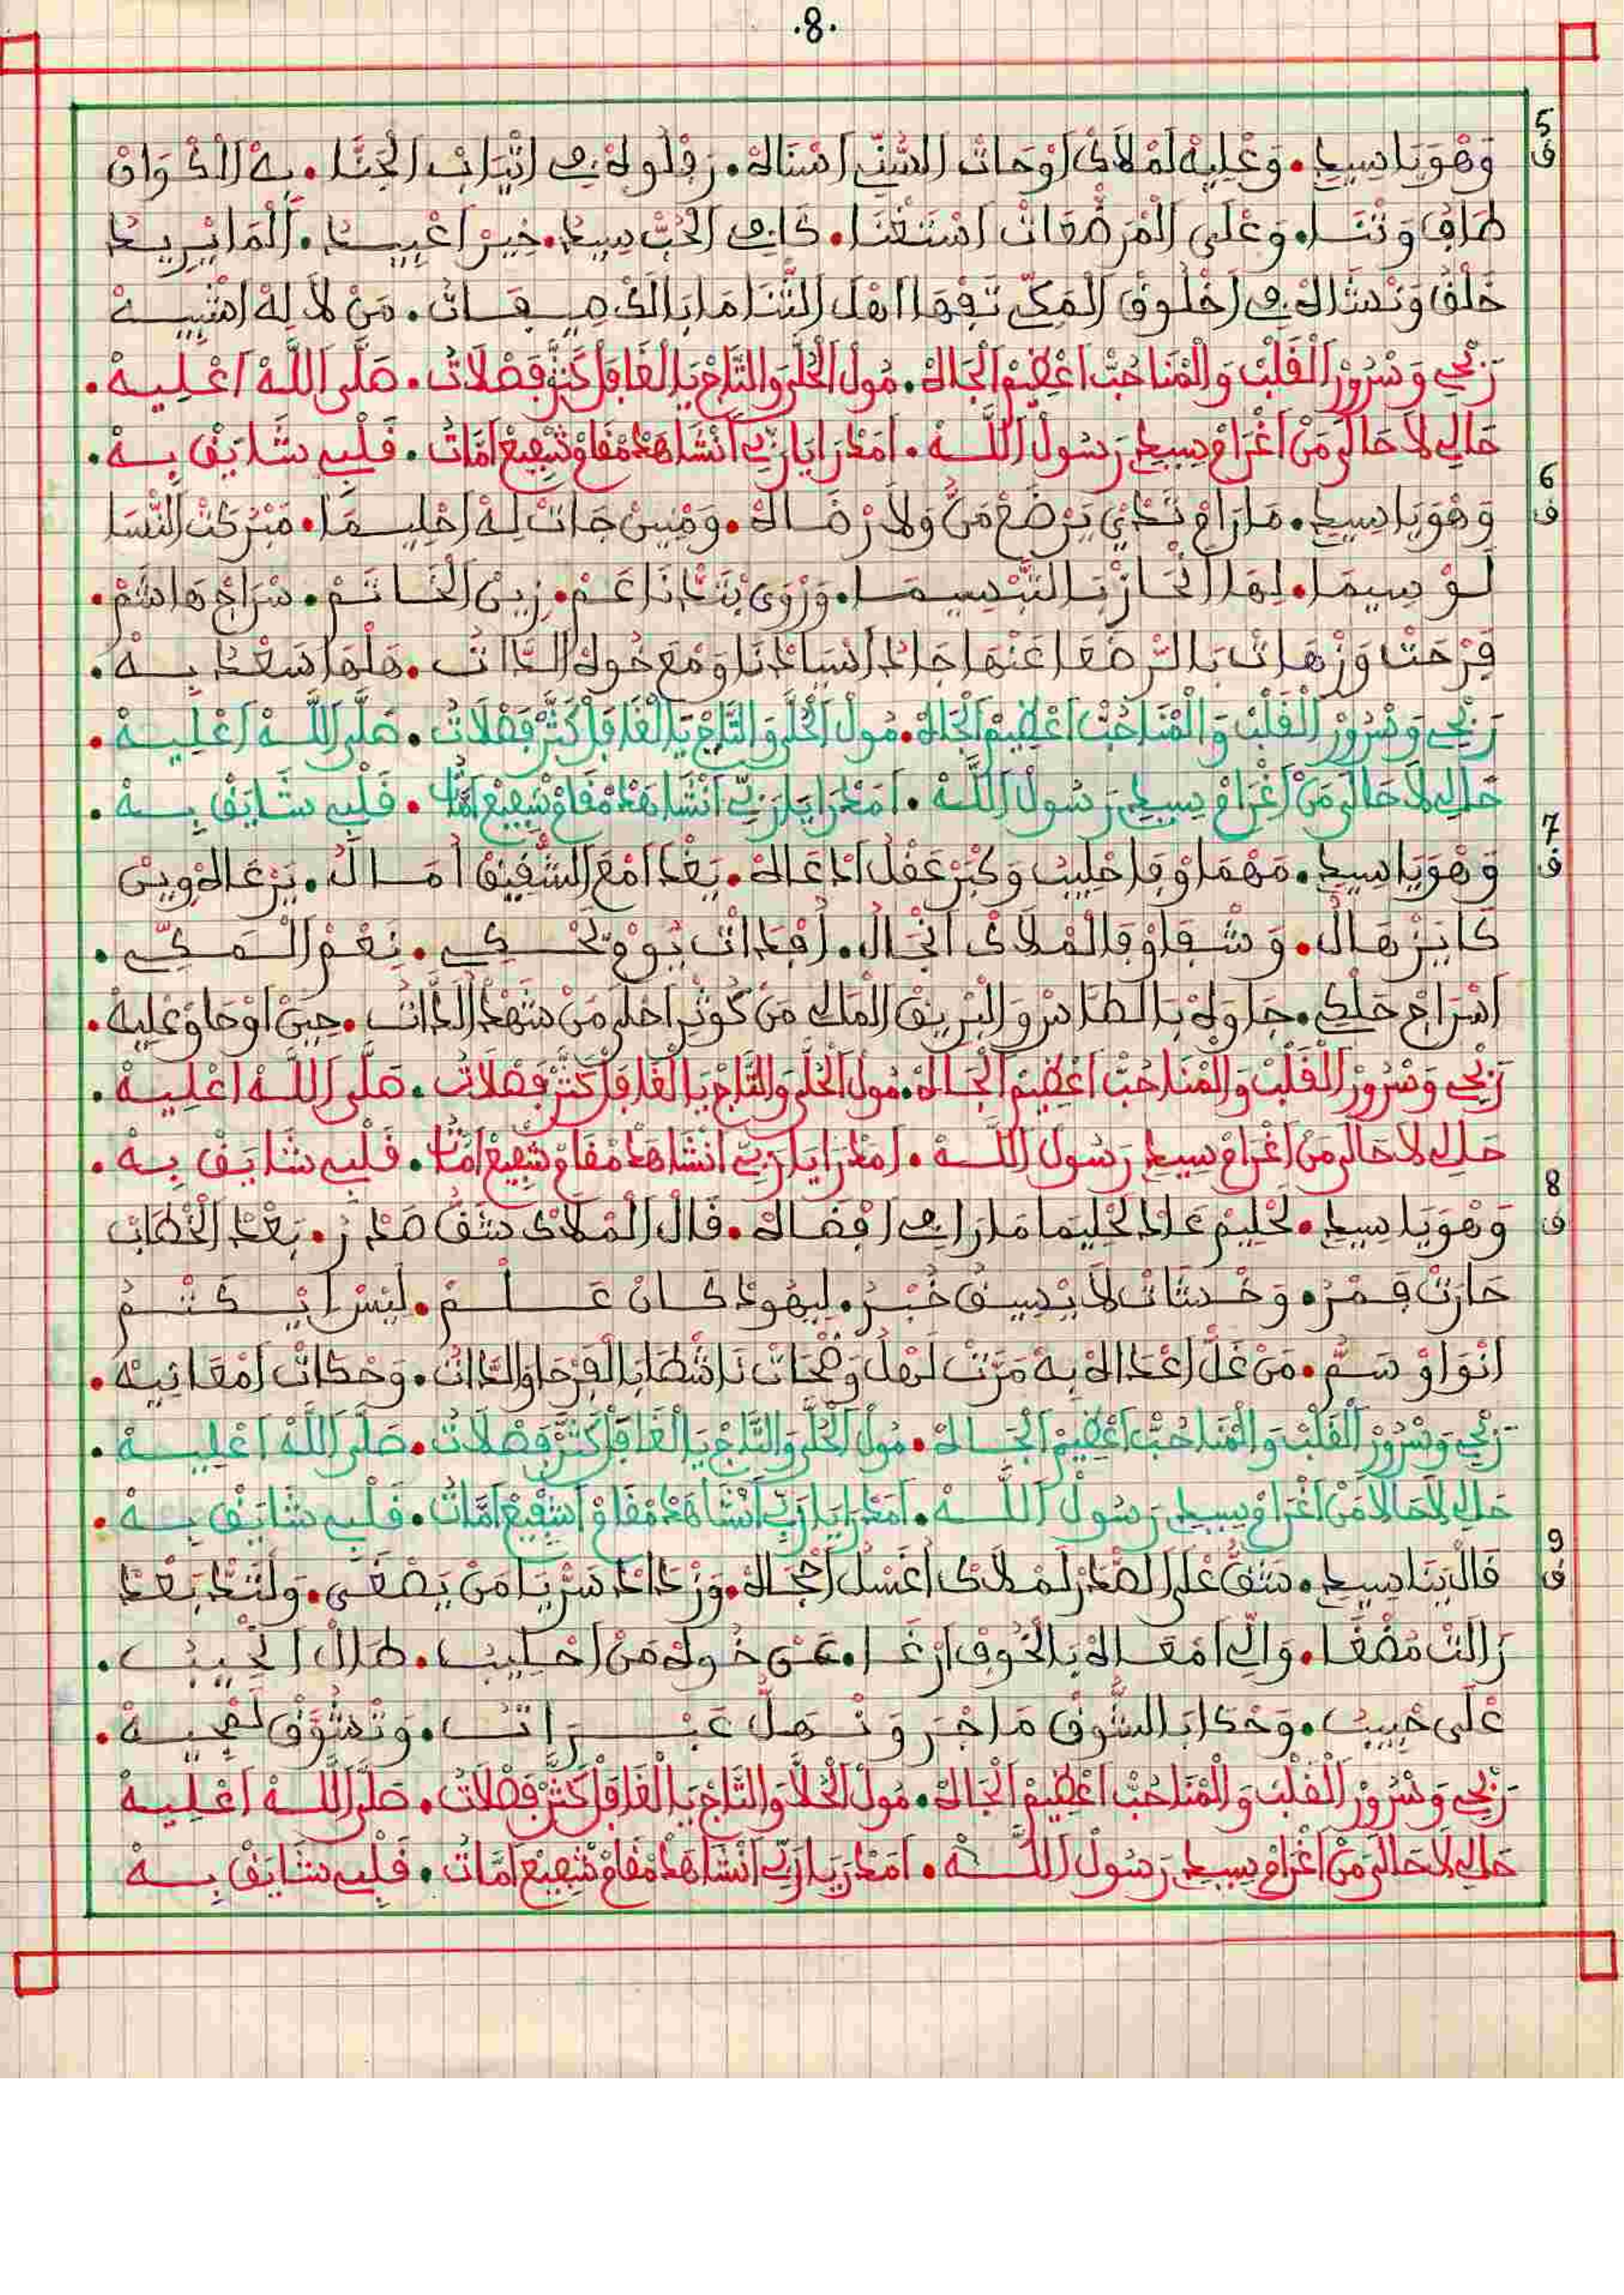 .8.
5
ف
وَهْوَ يَا سِيدِي • وَعْلِيهْ لَمْلَاكْ اوْحَاتْ السُّنِّي اسْنَاهْ • رَفْلُوهْ فِي اثْيَابْ الْجَنَّا • بِهْ الَاكْوَانْ
طَافُ وَتْنَا • وَعْلَى الْمَرْضْعَاتْ اسْتَغْنَا • كَافِي الْحُبّْ سِيدْ • خِيرْ اعْبِيدْ • الْمَا يْرِيدْ
خَلْقُ وَنْشَاهْ فِي اخْلُوقْ الْمَكِّي تَفْهَا اهْلْ الثّْنَا مَا بَالَكْ صِيفَاتُ • مَنْ لَا لِهْ اشْبِيهْ
رِبْحِي وَسْرُورْ الْقَلْبْ وَالْمْنَا حُبّْ اعْظِيمْ الْجَاهْ • مُولْ الْحُلَّى وَالتَّاجْ يَا الْقَافَلْ كَثَّرْ فَصْلَاتُ • صَلَّى اللَّهْ اعْلِيهْ •
حَالِي لَا حَالَى مَنْ اغْرَامْ سِيدِي رَسُولْ اللَّهْ • امْدَرَا يَا رَبِّي انْشَاهَدْ مْقَامْ شْفِيعْ امَّاتُ • قَلْبِي شَايَقْ بِهْ •
6
ف
وَهْوَ يَا سِيدِي • مَا رَامْ ثَدْيْ يَرْضَعْ مَنُّ وَلَا رْضَاهْ • وَمْنِينْ جَاتْ لِهْ احْلِيمَا • مَبْرَكْتْ النّْسَا
لُوسِيمَا • لِهَا انْحَازْ بَالتَّبْسِيمَا • وَرْوَى بَنْدَانَا عَمْ • زِينْ الْخَاتَمْ • سْرَاجْ هَاشَمْ •
فَرْحَتْ وَزْهَاتْ بَالرَّضْعَا عَنْهَا جَادْ اسْيَادْنَا وَمْعَ خُوهْ الدَّاتْ • مَلْهَا سَعْدْ بِهْ •
رِبْحِي وَسْرُورْ الْقَلْبْ وَالْمْنَا حُبّْ اعْظِيمْ الْجَاهْ • مُولْ الْحُلَّى وَالتَّاجْ يَا الْقَافَلْ كَثَّرْ فَصْلَاتُ • صَلَّى اللَّهْ اعْلِيهْ •
حَالِي لَا حَالَى مَنْ اغْرَامْ سِيدِي رَسُولْ اللَّهْ • امْدَرَا يَا رَبِّي انْشَاهَدْ مْقَامْ شْفِيعْ امَّاتُ • قَلْبِي شَايَقْ بِهْ •
7
ف
وَهْوَ يَا سِيدِي • مَهْمَا وْفَا حْلِيبُ وَكْبَرْ عَقْلُ ادْعَاهْ • يَغْدَا امْعَ الشّْقِيقْ امَّالُ • يَرْعَاهْ وِينْ
كَا يَزْهَالُ • وَشْفَاوْ فَالْمْلَاكْ انْجَالُ • افْدَاتْ يُومْ نَحْكِي • نِعْمْ الْمَكِّي •
اسْرَاجْ حَلْكِي • جَاوَهْ بَالطَّاسْ وَالْبْرِيقْ الْمَالِي مَنْ كُوثْرْ احْلَى مَنْ شَهْدْ الدَّاتْ • حِينْ اوْحَاوْ عْلِيهْ •
رِبْحِي وَسْرُورْ الْقَلْبْ وَالْمْنَا حُبّْ اعْظِيمْ الْجَاهْ • مُولْ الْحُلَّى وَالتَّاجْ يَا الْقَافَلْ كَثَّرْ فَصْلَاتُ • صَلَّى اللَّهْ اعْلِيهْ •
حَالِي لَا حَالَى مَنْ اغْرَامْ سِيدِي رَسُولْ اللَّهْ • امْدَرَا يَا رَبِّي انْشَاهَدْ مْقَامْ شْفِيعْ امَّاتُ • قَلْبِي شَايَقْ بِهْ •
8
ف
وَهْوَ يَا سِيدِي • لَحْلِيمْ عَادْ لَحْلِيمَا مَا رَا فِي افْضَاهْ • قَالْ الْمْلَاكْ شَقُّ صَدْرُ • بَعْدْ الْخْطَابْ
حَارَتْ فَمْرُ • وَخْشَاتْ لَا يْسِيقْ خُبْرُ • لِيهُودْ كَانْ عَلْمْ • لِيسْ ايْكَتْمُ
انْوَاوْ سَمُّ • مَنْ غَلّْ اعْدَاهْ بِهْ مَرَّتْ لَهْلُ وَضْحَاتْ نَاشْطَا بَالْفَرْحَا وَالدَّاتْ • وَحْكَاتْ امْعَانِيهْ •
رِبْحِي وَسْرُورْ الْقَلْبْ وَالْمْنَا حُبّْ اعْظِيمْ الْجَاهْ • مُولْ الْحُلَّى وَالتَّاجْ يَا الْقَافَلْ كَثَّرْ فَصْلَاتُ • صَلَّى اللَّهْ اعْلِيهْ •
حَالِي لَا حَالَا مَنْ اغْرَامْ سِيدِي رَسُولْ اللَّهْ • امْدَرَا يَا رَبِّي انْشَاهَدْ مْقَامْ اشْفِيعْ امَّاتُ • قَلْبِي شَايَقْ بِهْ •
9
ف
قَالْ يَنَا سِيدِي • شَقُّ عْلَى الصّْدَرْ لَمْلَاكْ اغْسَلْ احْجَاهْ • وَزْدَادْ سَرّْ يَا مَنْ يَصْغَى • وَلْتَدّْ بَعْدْ
زَالَتْ مُضْغَا • وَالِي امْعَاهْ بَالْخُوفْ ارْغَا • عَنْ خُوهْ مَنْ احْلِيبُ • طَالْ الْحْبِيبْ •
عْلَى حْبِيبُ • وَحْكَا بَالشُّوقْ مَا جْرَ وَنْهَلّْ عَبْرَاتُ • وَتْشَوَّقْ لَمْجِيهْ •
رِبْحِي وَسْرُورْ الْقَلْبْ وَالْمْنَا حُبّْ اعْظِيمْ الْجَاهْ • مُولْ الْحُلَّا وَالتَّاجْ يَا الْقَافَلْ كَثَّرْ فَصْلَاتُ • صَلَّى اللَّهْ اعْلِيهْ
حَالِي لَا حَالَى مَنْ اغْرَامْ سِيدِي رَسُولْ اللَّهْ • امْدَرَا يَا رَبِّي انْشَاهَدْ مْقَامْ شْفِيعْ امَّاتُ • قَلْبِي شَايَقْ بِهْ